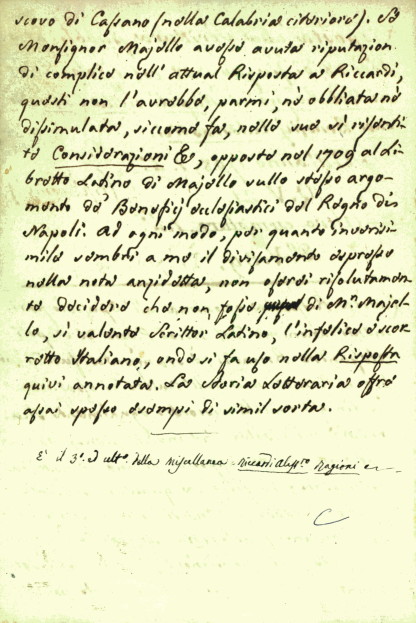 scovo di Cassano (nella Calabria citeriore). Se
Monsignor Majello avesse avuta riputazion
di complice nell'attual Risposta a Riccardi,
questi non l'avrebbe, parmi, nè obbliata nè
dissimulata, siccome fa, nelle sue sì risenti-
te Considerazioni &c, opposte nel 1709 al Li-
bretto Latino di Majello sullo stesso argo-
mento de' Beneficj ecclesiastici del Regno di
Napoli. Ad ogni modo, per quanto inverisi-
mile sembri a me il divisamento espresso
nella nota anzidetta, non oserei risolutamen-
te decidere che non fosse di Mr. Majel-
lo, sì valente Scrittor Latino, l'infelice e scor-
retto Italiano, onde si fa uso nella Risposta
quivi annotata. La Storia Letteraria offre
assai spesso esempi di simil sorta.
È il 3º. ed ultº. della Miscellanea = Riccardi Alessro Ragioni e =